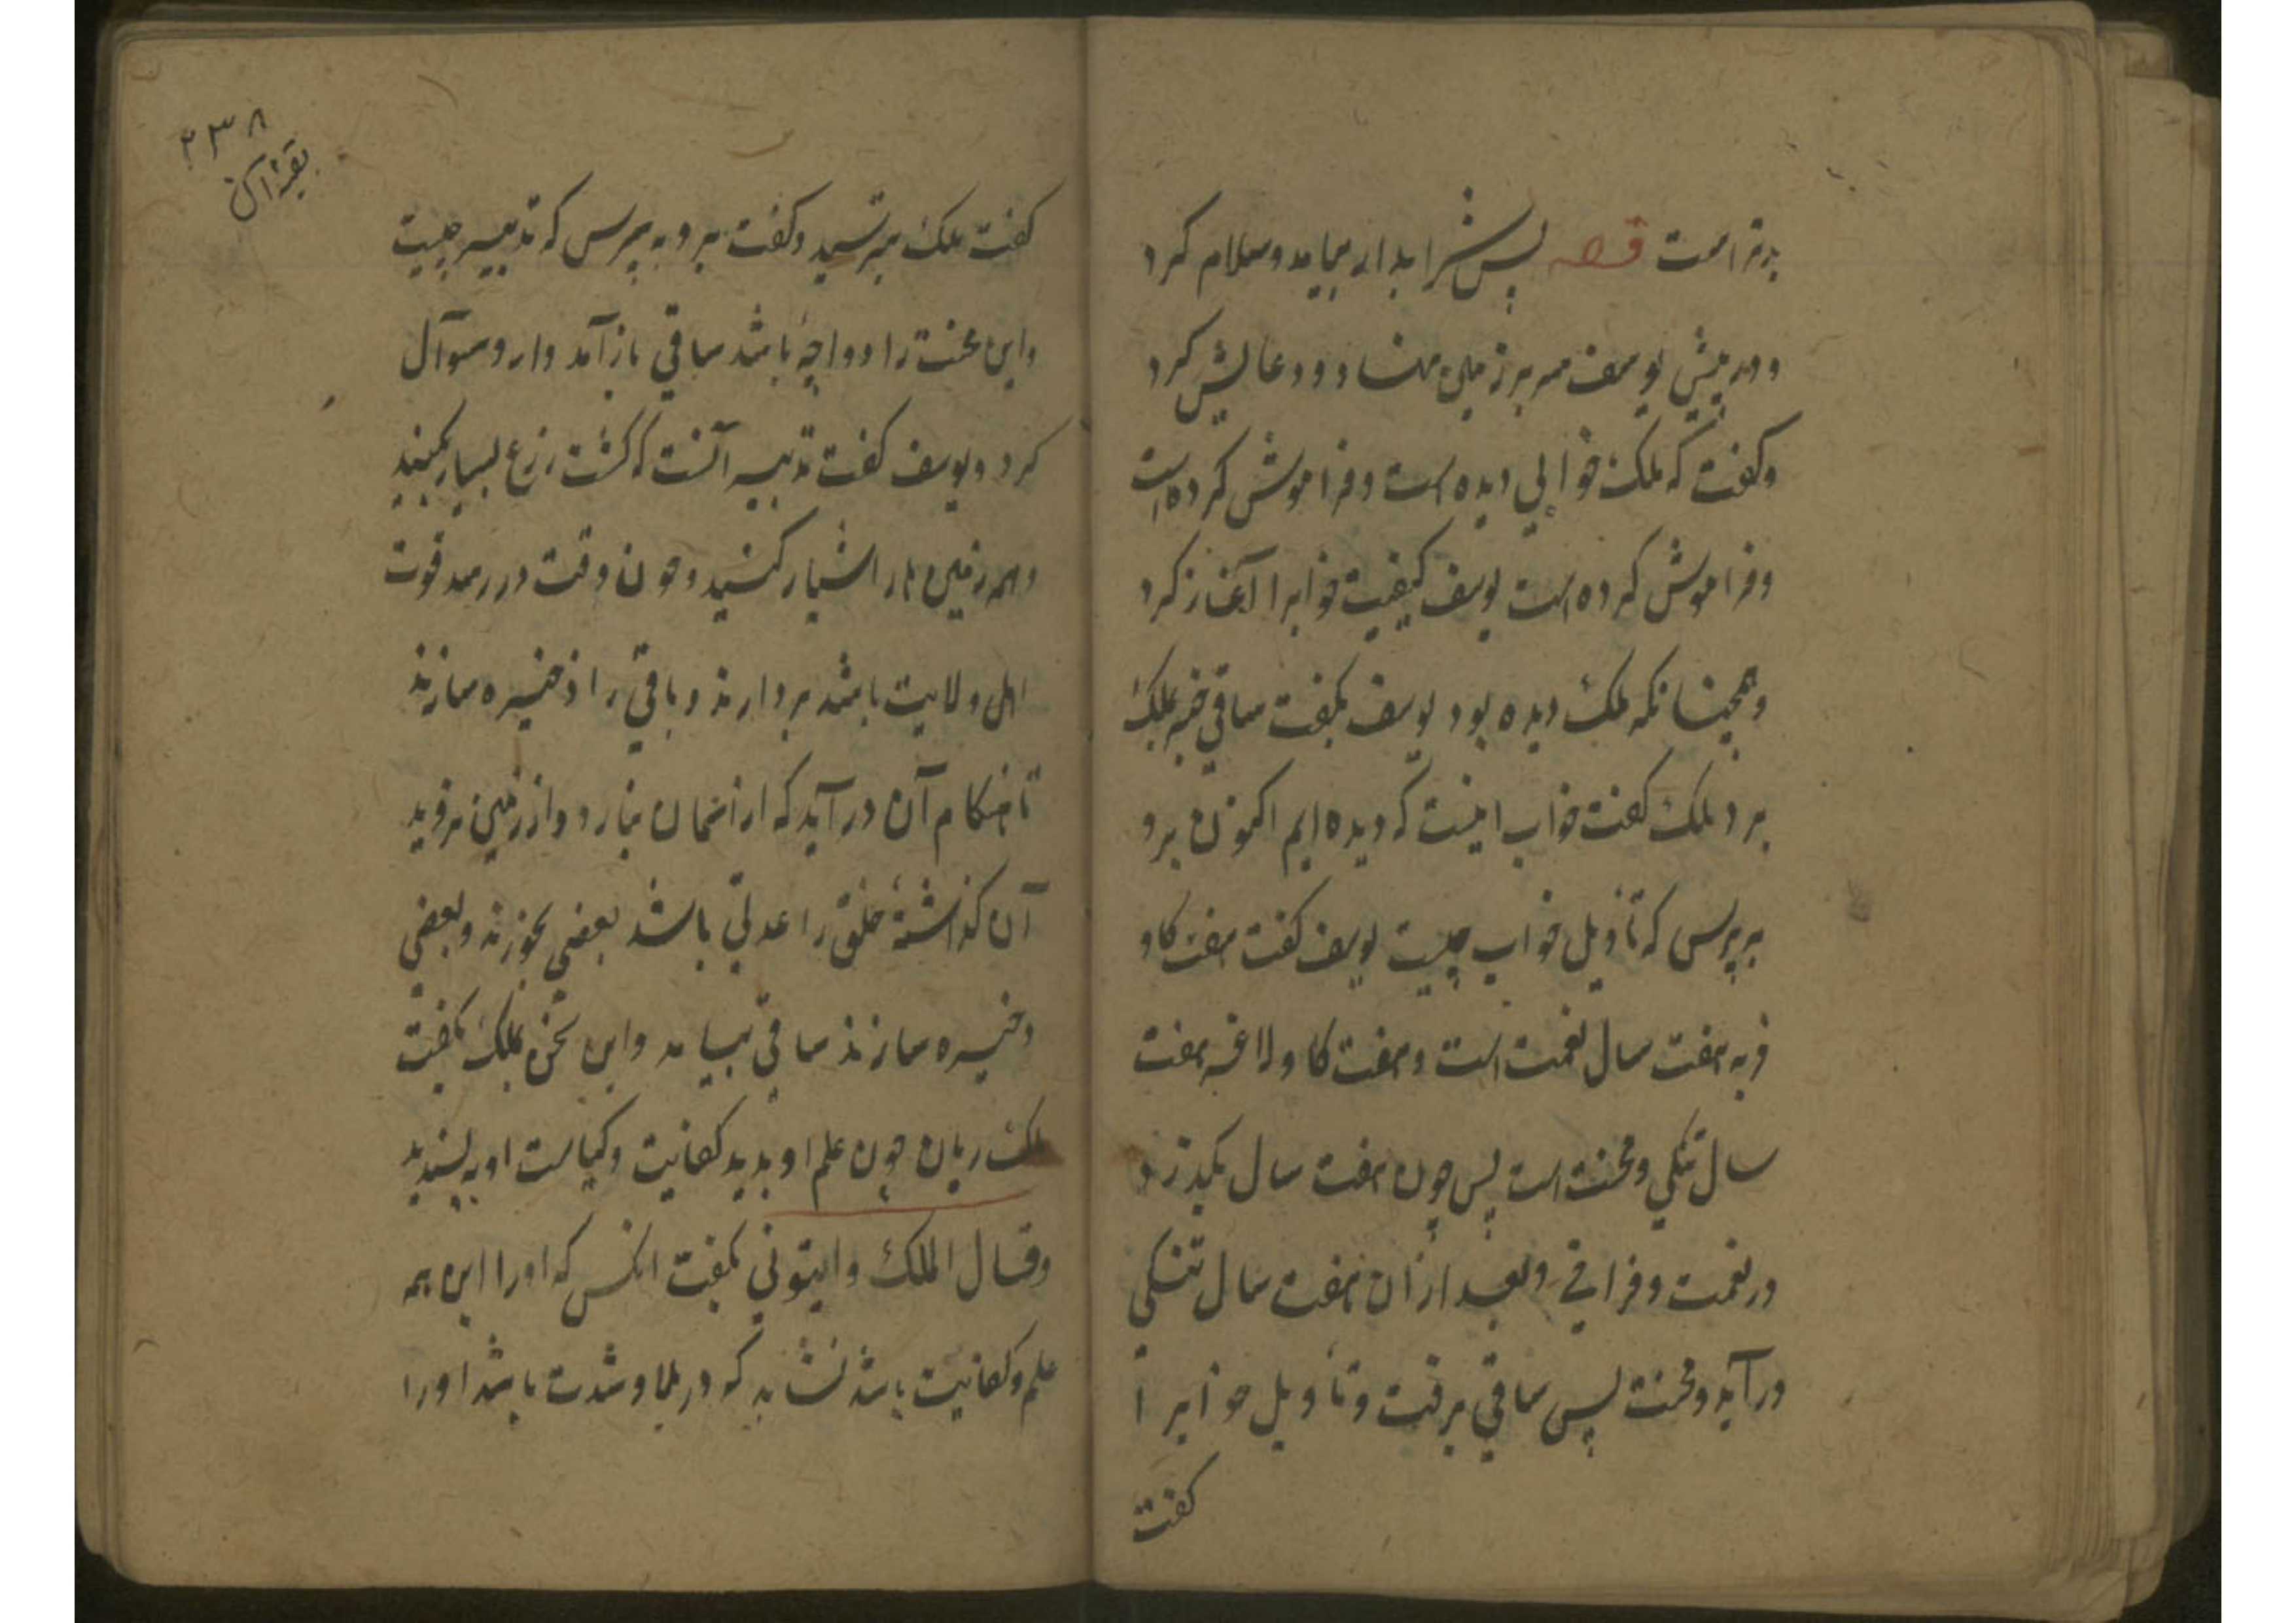 بدتر است قصه پس شرابدار بیامد و سلام کرد
و در پیش یوسف سر بر زمین نهاد و دعایش کرد
و کفت که ملک خوابی دیده است و فراموش کرده است
و فراموش کرده است یوسف کیفیت خوابرا آغاز کرد
و همچنانکه ملک دیده بود یوسف بکفت ساقی خبر بملک
برد ملک کفت خواب اینست که دیده ایم اکنون برو
بپرس که تأویل خواب چیست یوسف کفت هفت کاو
فربه هفت سال نعمت است و هفت کاو لاغر هفت
سال تنکی و محنت است پس چون هفت سال بکذرد
در نعمت و فراخی و بعد از آن هفت سال تنکی
در آید و محنت پس ساقی برفت و تأویل خوابرا
کفت
۲۳۸
کفت ملک بترسید و کفت برو به پرس که تدبیر چیست
و این محنت را دوا چه باشد ساقی باز آمد و ازو سوآل
کرد و یوسف کفت تدبیر آنست که کشت زرع بسیار بکنید
و همه زمین ها را شیار کنید و چون وقت در رسد قوت
اهل ولایت باشد بردارند و باقی را ذخیره سازند
تا هنکام آن در آید که از آسمان نبارد و از زمین نروید
آن کذاشته خلق را عدتی باشد بعضی بخورند و بعضی
ذخیره سازند ساقی بیامد و این سخن بملک بکفت
ملک ریان چون علم او بدید کفایت و کیاست او به پسندید
وقال الملک وایتونی بکفت انکس که اورا این همه
علم و کفایت باشد نشاید که در بلا و شدت باشد اورا